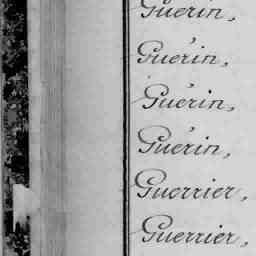 Guérin,
Guérin,
Guérin,
Guérin,
Guerrier,
Guerrier,